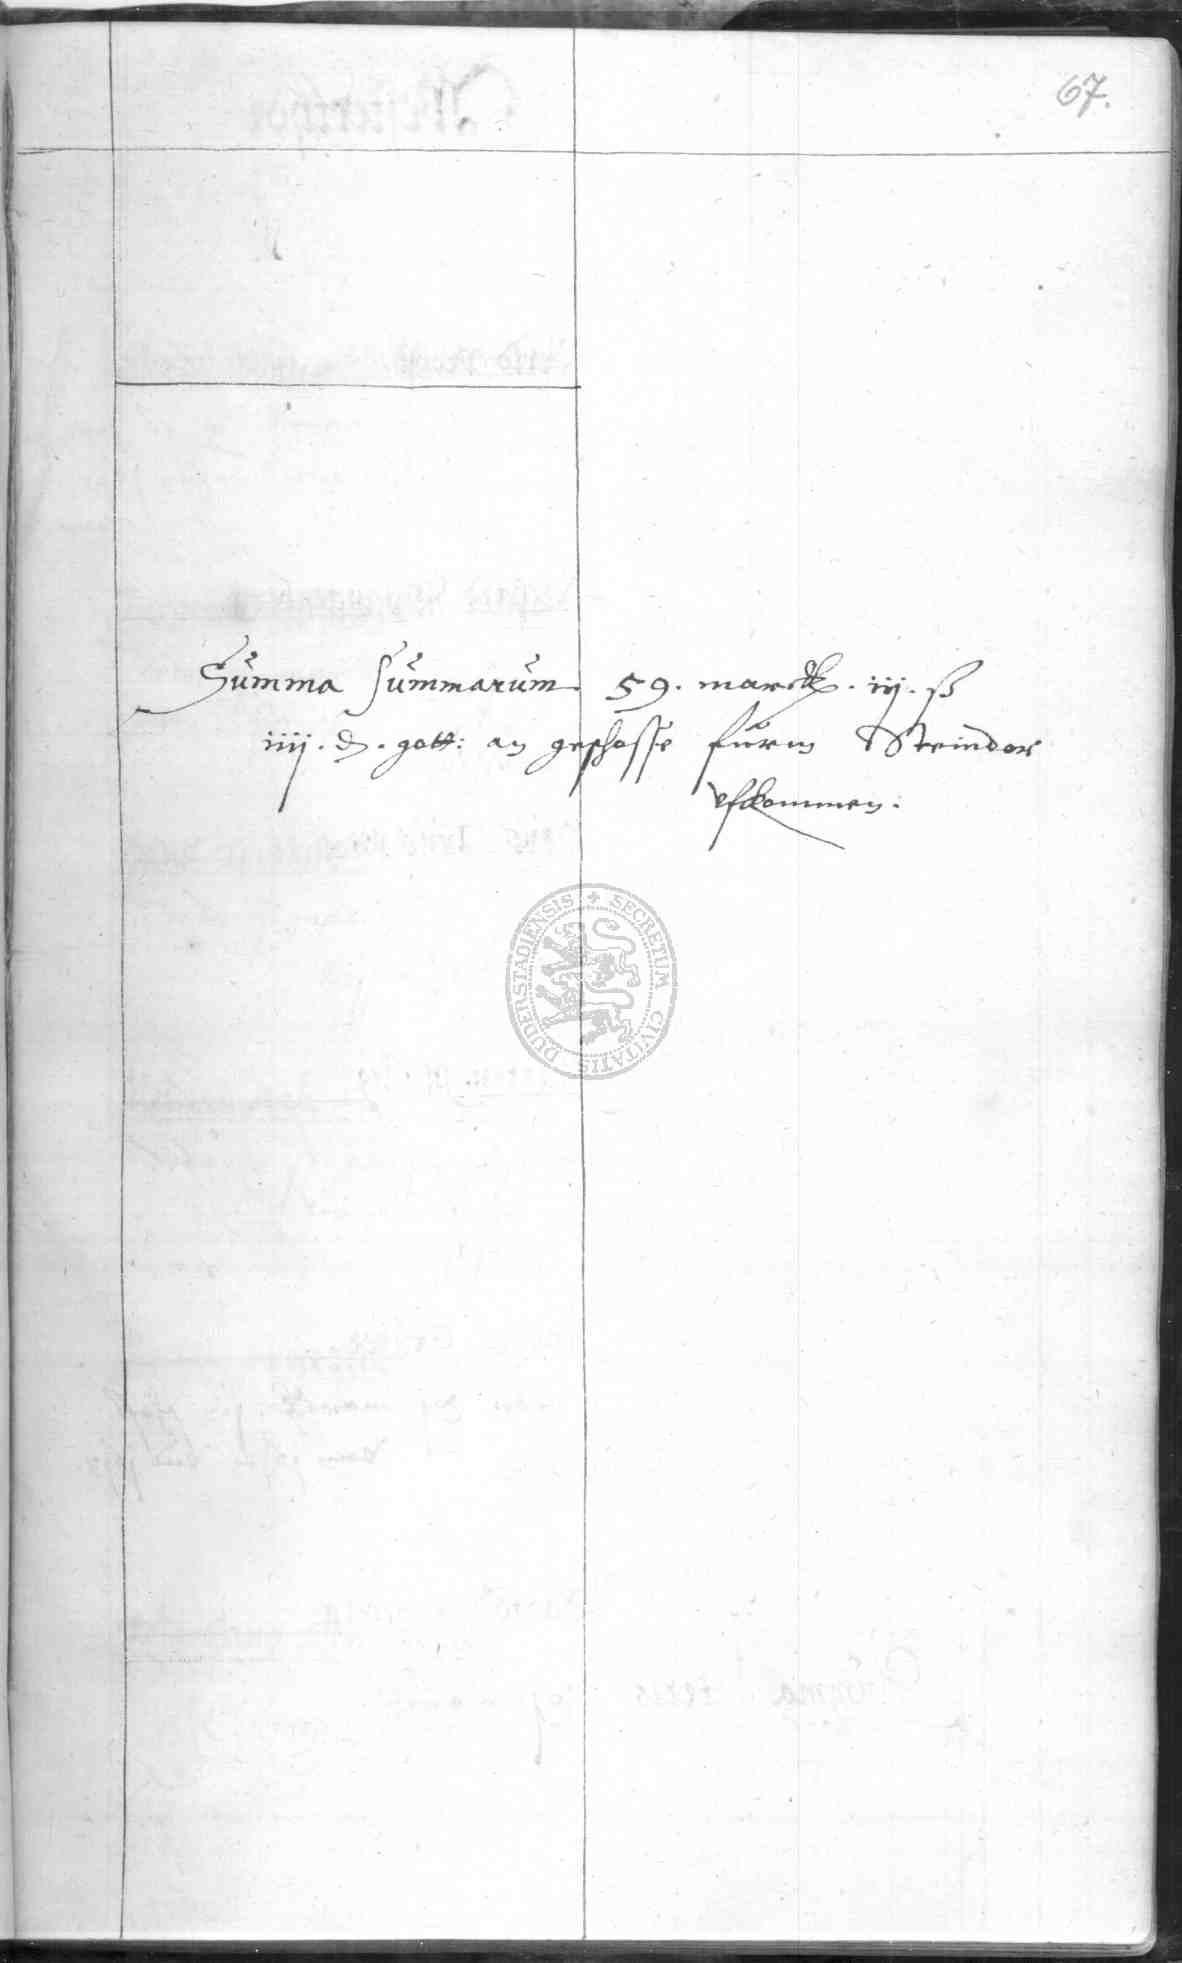 67.
Summa Summarum 59. marck. iij. ß
iiij. d. gott: an geschosse fürm Steindor
vfkommen.
SECRETUM CIVITATIS DUDERSTADIENSIS